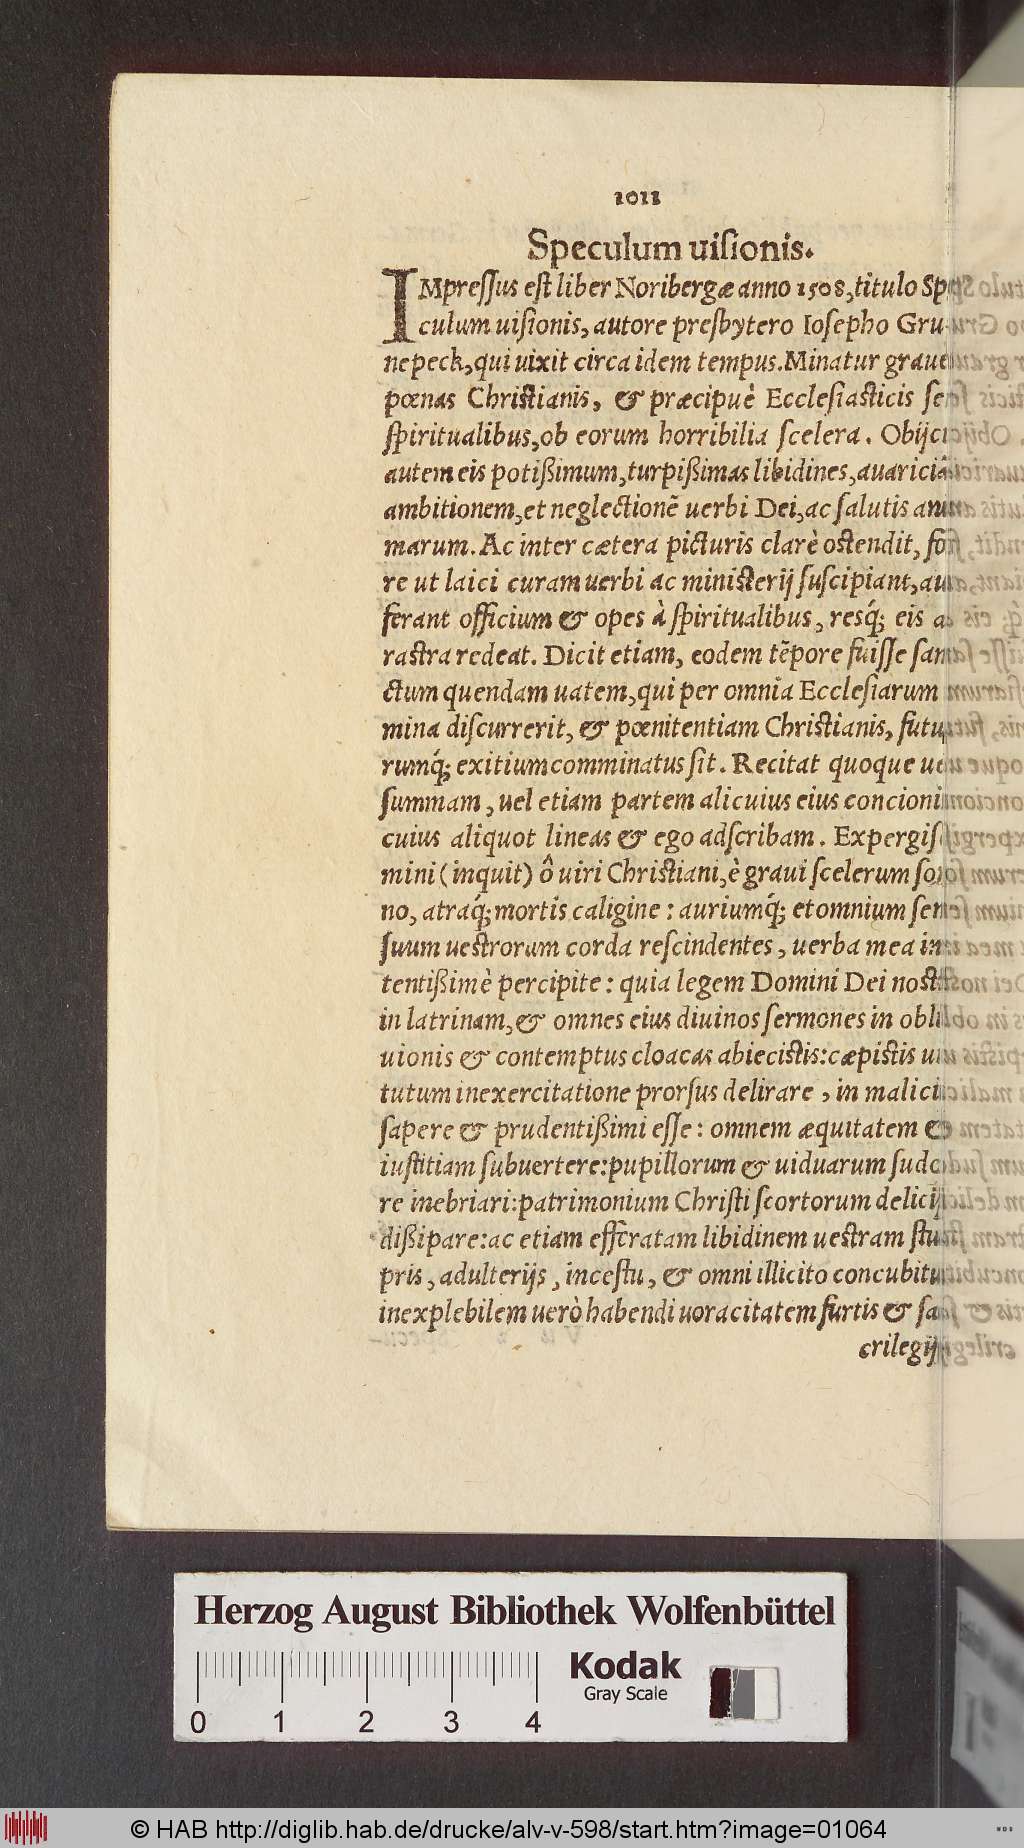 1011
Speculum uiſionis.
IMpreſſus eſt liber Noribergæ anno 1508, titulo Spe
culum uiſionis, autore presbytero Ioſepho Gru-
nepeck, qui uixit circa idem tempus. Minatur graues
pœnas Chriſtianis, & præcipuè Eccleſiaſticis ſeu
ſpiritualibus, ob eorum horribilia ſcelera. Obijcit
autem eis potißimum, turpißimas libidines, auariciã
ambitionem, et neglectionẽ uerbi Dei, ac ſalutis ani
marum. Ac inter cætera picturis clarè oſtendit, fo
re ut laici curam uerbi ac miniſterij ſuſcipiant, au
ferant officium & opes à ſpiritualibus, resq́; eis a
raſtra redeat. Dicit etiam, eodem tẽpore fuiſſe ſan
ctum quendam uatem, qui per omnia Eccleſiarum
mina diſcurrerit, & pœnitentiam Chriſtianis, futu
rumq́; exitium comminatus ſit. Recitat quoque
ſummam, uel etiam partem alicuius eius concionis
cuius aliquot lineas & ego adſcribam. Expergiſci
mini (inquit) ô uiri Chriſtiani, è graui ſcelerum ſom
no, atraq́; mortis caligine: auriumq́; et omnium ſen
ſuum ueſtrorum corda reſcindentes, uerba mea in
tentißimè percipite: quia legem Domini Dei noſtri
in latrinam, & omnes eius diuinos ſermones in obli
uionis & contemptus cloacas abieciſtis: cæpiſtis uir
tutum inexercitatione prorſus delirare, in malicia
ſapere & prudentißimi eſſe: omnem æquitatem &
iuſtitiam ſubuertere: pupillorum & uiduarum ſudo
re inebriari: patrimonium Chriſti ſcortorum delicijs
dißipare: ac etiam efferatam libidinem ueſtram ſtu
pris, adulterijs, inceſtu, & omni illicito concubitu
inexplebilem uerò habendi uoracitatem furtis & ſa
crilegijs
Herzog August Bibliothek Wolfenbüttel
Kodak
Gray Scale
0 1 2 3 4
© HAB http://diglib.hab.de/drucke/alv-v-598/start.htm?image=01064